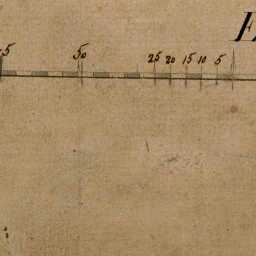 75 50 25 20 15 10 5